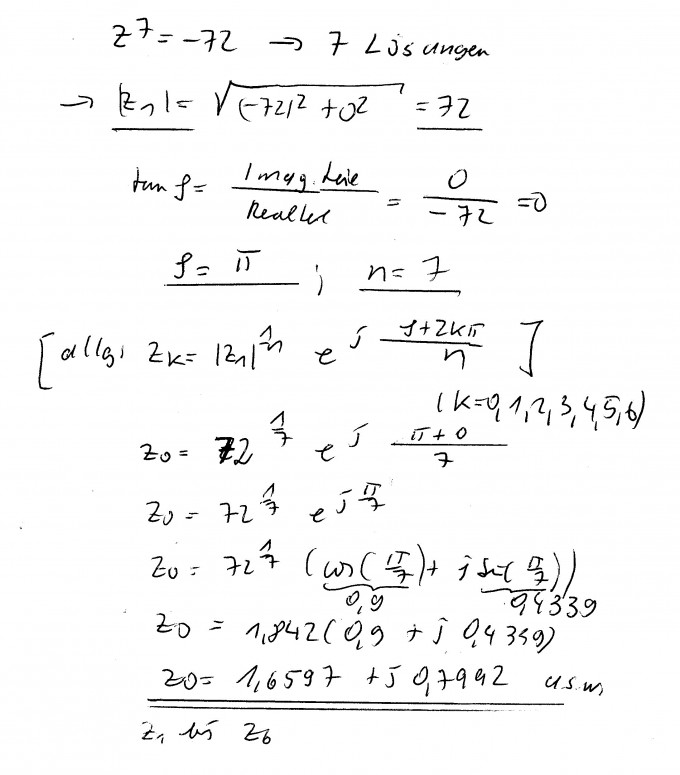 z^7 = -72 → 7 Lösungen
→ |z_1| = √((-72)^2 + 0^2) = 72
tan φ = Imag.teile / Realteil = 0 / -72 = 0
φ = π ; n = 7
[allg: z_k = |z_1|^(1/n) e^(j (φ+2kπ)/n)]
(k=0,1,2,3,4,5,6)
z_0 = 72^(1/7) e^(j (π+0)/7)
z_0 = 72^(1/7) e^(j π/7)
z_0 = 72^(1/7) (cos(π/7) + j sin(π/7))
0,9 0,4339
z_0 = 1,842(0,9 + j 0,4339)
z_0 = 1,6597 + j 0,7992 u.s.w.
z_1 bis z_6